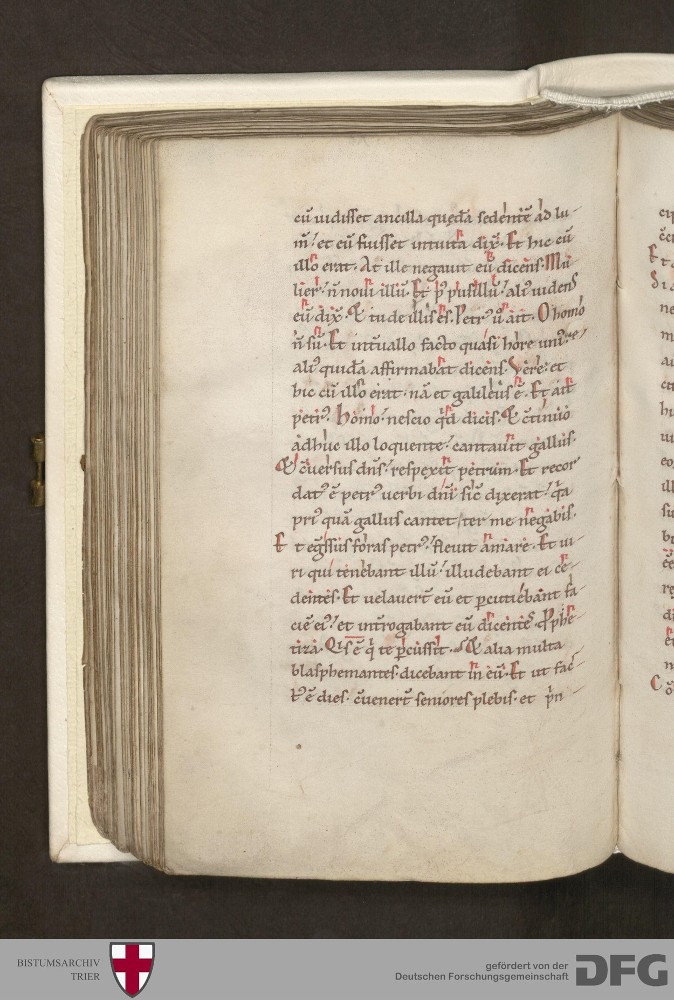 cū uidisset ancilla quędā sedentē ad lu-
m̄ et eū fuisset intuita dix̄. Et hic cū
illo erat. At ille negauit eū dicens. Mu
lier n̄ noui illū. Et p᷒ pusillū ali᷒ uidens
eū dix̄. Et tu de illis es. Petr᷒ u̅ ait. O homo
n̄ sū. Et int̄uallo facto quasi hore uni᷒
ali᷒ quidā affirmabat dicens. Vere et
hic cū illo erat. nā et galileus ē. Et ait
petr᷒. Homo nescio qd̄ dicis. Et c̄tinuo
adhuc illo loquente cantauit gallus.
Et c̄uersus dn̄s respexit petrum. Et recor
dat᷒ ē petr᷒ uerbi dn̄i sic̄ dixerat. q̄a
pri᷒ quā gallus cantet ter me negabis.
Et eḡssus foras petr᷒ fleuit amare. Et ui-
ri qui tenebant illū illudebant ei cę-
dentes. Et uelauer̄t eū et ꝑcutiebant fa
ciē ei᷒ et int̄rogabant eū dicentes. Pphe
tiza. Qis ē q̇ te ꝑcussit. Et alia multa
blasphemantes dicebant in eū. Et ut fac-
t᷒ ē dies. c̄uener̄t seniores plebis. et p̄n-
BISTUMSARCHIV
TRIER
gefördert von der
Deutschen Forschungsgemeinschaft
DFG